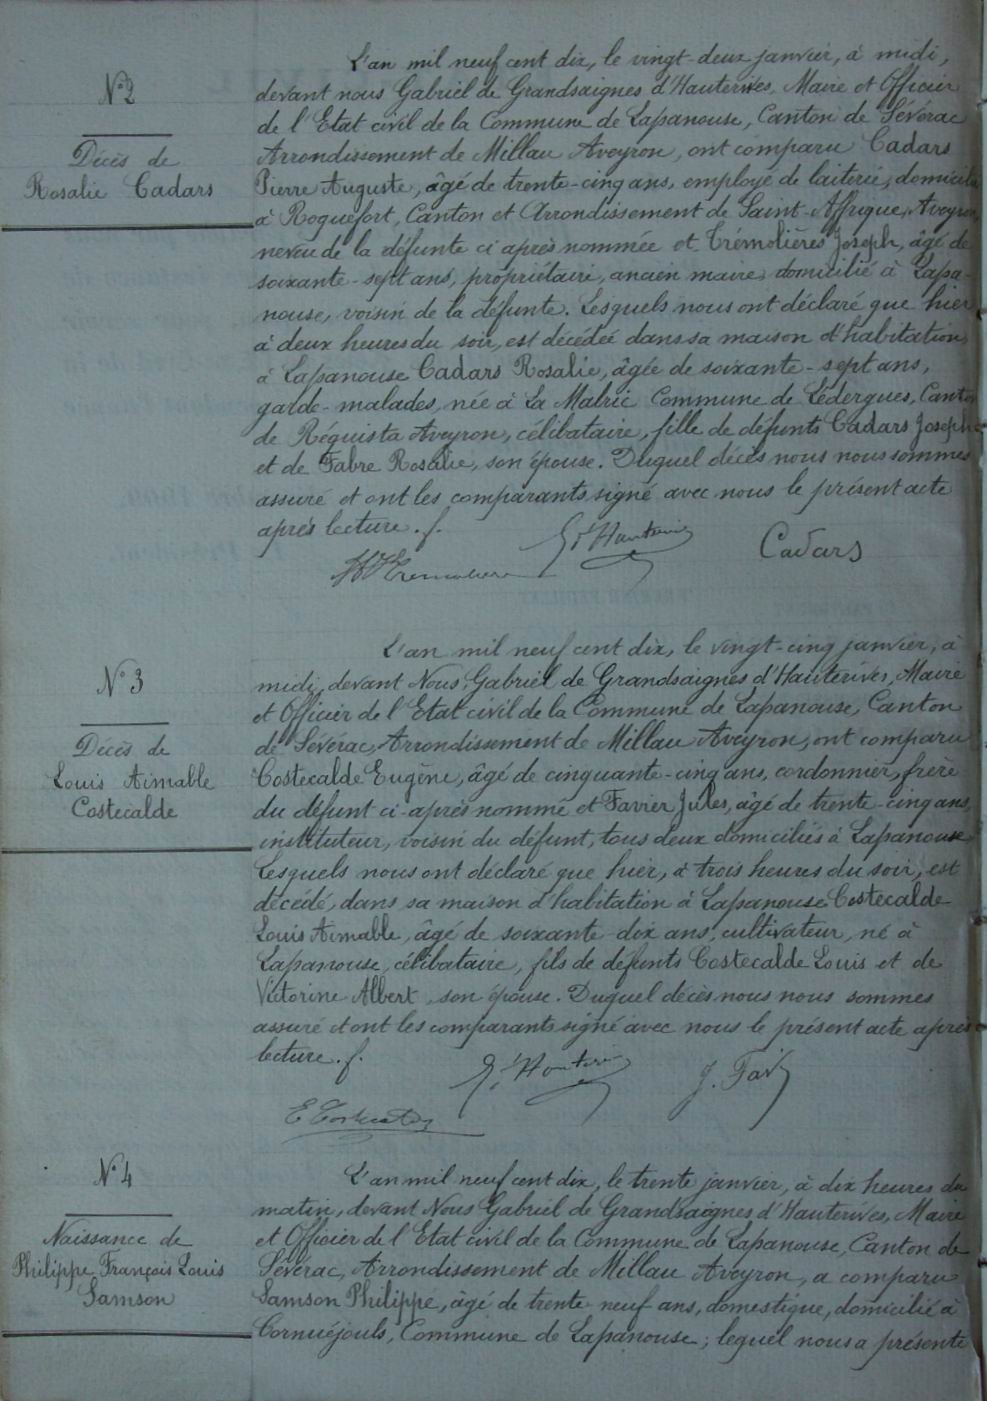 N° 2
Décès de
Rosalie Cadars
L'an mil neuf cent dix, le vingt-deux janvier, à midi,
devant nous Gabriel de Grandsaignes d'Hauterives, Maire et Officier
de l'Etat civil de la Commune de Lapanouse, Canton de Sévérac
Arrondissement de Millau Aveyron, ont comparu Cadars
Pierre Auguste, âgé de trente-cinq ans, employé de laiterie, domicilié
à Roquefort, Canton et Arrondissement de Saint-Affrique, Aveyron,
neveu de la défunte ci après nommée et Trémolières Joseph, âgé de
soixante-sept ans, propriétaire, ancien maire, domicilié à Lapa-
nouse, voisin de la défunte. Lesquels nous ont déclaré que hier
à deux heures du soir, est décédée dans sa maison d'habitation
à Lapanouse Cadars Rosalie, âgée de soixante-sept ans,
garde-malades, née à La Malric Commune de Lédergues, Canton
de Réquista Aveyron, célibataire, fille de défunts Cadars Joseph
et de Fabre Rosalie, son épouse. Duquel décès nous nous sommes
assuré et ont les comparants signé avec nous le présent acte
après lecture. f.
G. d'Hauterives
Cadars
Trémolières
N° 3
Décès de
Louis Aimable
Costecalde
L'an mil neuf cent dix, le vingt-cinq janvier, à
midi, devant Nous Gabriel de Grandsaignes d'Hauterives, Maire
et Officier de l'Etat civil de la Commune de Lapanouse, Canton
de Sévérac, Arrondissement de Millau Aveyron, ont comparu
Costecalde Eugène, âgé de cinquante-cinq ans, cordonnier, frère
du défunt ci-après nommé et Favier Jules, âgé de trente-cinq ans,
instituteur, voisin du défunt, tous deux domiciliés à Lapanouse
Lesquels nous ont déclaré que hier, à trois heures du soir, est
décédé, dans sa maison d'habitation à Lapanouse Costecalde
Louis Aimable, âgé de soixante-dix ans, cultivateur, né à
Lapanouse, célibataire, fils de défunts Costecalde Louis et de
Victorine Albert, son épouse. Duquel décès nous nous sommes
assuré et ont les comparants signé avec nous le présent acte après
lecture. f.
G. d'Hauterives
J. Fav
N° 4
Naissance de
Philippe François Louis
Samson
L'an mil neuf cent dix, le trente janvier, à dix heures du
matin, devant Nous Gabriel de Grandsaignes d'Hauterives, Maire
et Officier de l'Etat civil de la Commune de Lapanouse, Canton de
Sévérac, Arrondissement de Millau Aveyron, a comparu
Samson Philippe, âgé de trente-neuf ans, domestique, domicilié à
Cornuéjouls, Commune de Lapanouse ; lequel nous a présenté